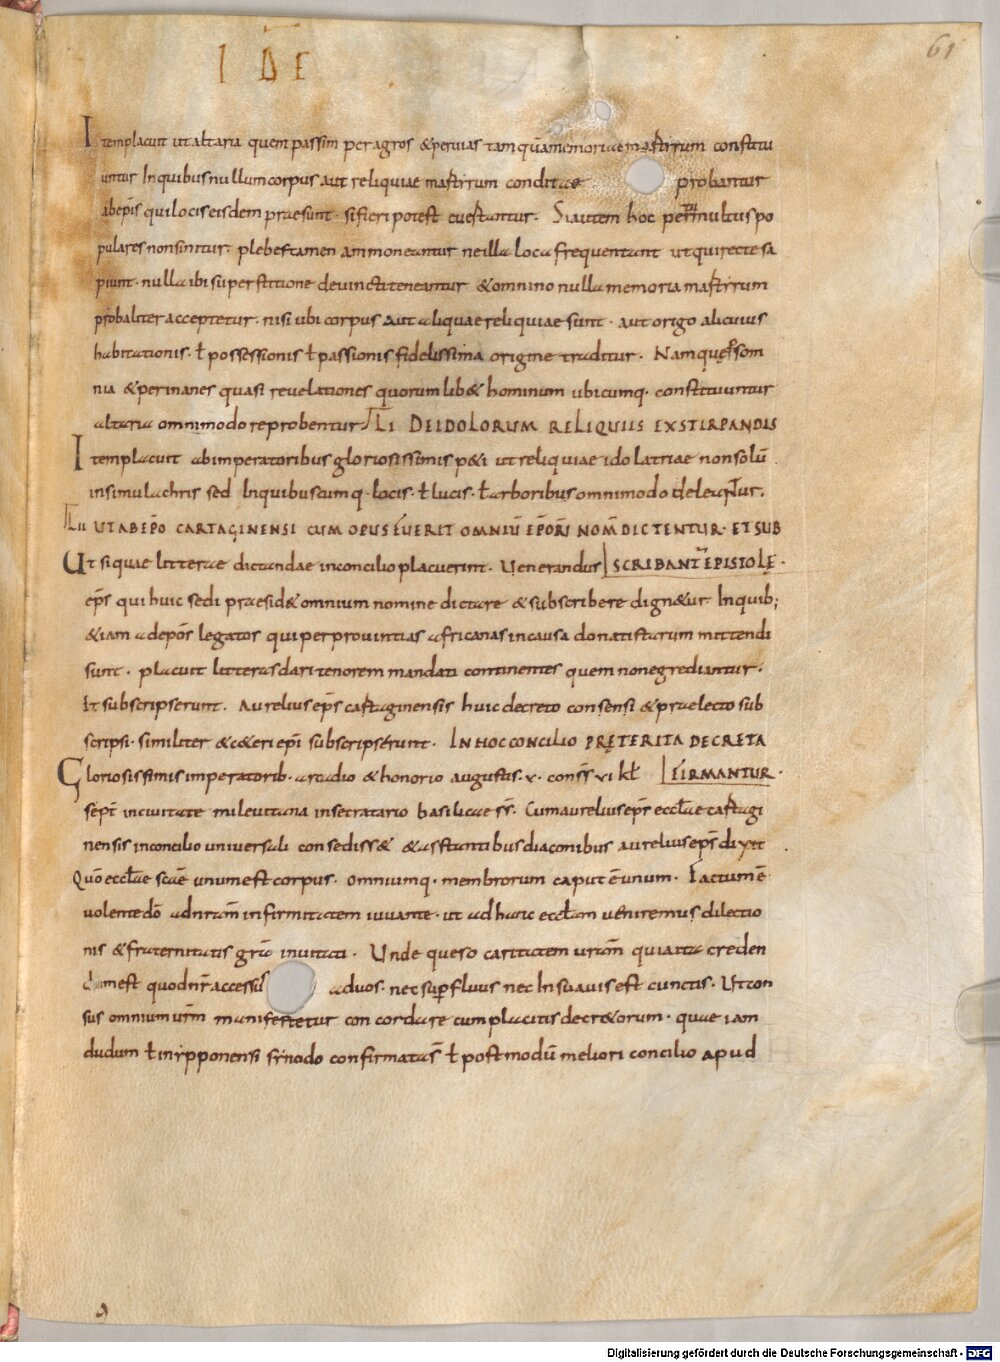 I D̄ E
61
Itemplacuit ut altaria quem passim peragros &peruias tamquāmemoriaemartirum constitu
untur Inquibusnullumcorpus aut reliquiae martirum conditae probantur
abep̄is quilociseisdem praesunt· sifieri potest euertantur· Siautem hoc pertumultuspo
pulares nonsinitur· plebestamen ammoneantur neilla loca frequentant utquirectesa
piunt· nulla ibi superstitione deuinctiteneantur &omnino nulla memoria martirum
probaliter acceptetur· nisi ubi corpus aut aliquae reliquiae sunt· aut origo alicuius
habitationis· ł possessionis ł passionis fidelissima origine traditur· Nam quę ꝑ som
nia &perinanes quasi reuelationes quorumlib& hominum ubicumq· constituuntur
altaria omnimodo reprobentur LI DEIDOLORUM RELIQUIIS EXSTIRPANDIS
Itemplacuit abimperatoribus gloriosissimis p&i ut reliquiae idolatriae nonsolū
insimulachris sed Inquibuscumq· locis· ł lucis· ł arboribus omnimodo deleantur·
LII UT ABEP̄O CARTAGINENSI CUM OPUS FUERIT OMNIŪ EP̄ORŪ NOM̄ DICTENTUR· ET SUB
Ut siquae litterae dictandae inconcilio placuerint· Uenerandus SCRIBANT̄ EPISTOLĘ·
ep̄s qui huic sedi praesid& omnium nomine dictare & subscribere dign&ur· Inquib;
&iam adepōs legatos qui per prouintias africanas incausa donatistarum mittendi
sunt· placuit litteras dari tenorem mandati continentes quem nonegrediantur·
Et subscripserunt· Aurelius ep̄s cartaginensis huic decreto consensi & praelecto sub
scripsi· similiter &c&eri ep̄i subscripserunt· IN HOC CONCILIO PRĘTERITA DECRETA
Gloriosissimis imperatorib· arcadio & honorio augustis· v· conss̄ vi kł FIRMANTUR·
sept̄ inciuitate mileuitana insecratario basilicae ss̄· Cumaurelius ep̄s eccłae cartagi
nensis inconcilio uniuersali consediss& &asstantibus diaconibus aurelius ep̄s dixit
Quō eccłae scāe unum est corpus· omniumq· membrorum caput ē unum· Factum ē
uolentedō adnrām infirmitatem iuuante· ut ad hanc eccłam ueniremus dilectio
nis &fraternitatis grā inuitati· Unde queso caritatem urām quiatta creden
dumest quodnr̄ accessus aduos· nec suꝑfluus nec Insuauis est cunctis· Ut con
sus omnium ur̄m manifestetur concordare cum placitis decr&orum· quae iam
dudum ł in ypponensi synodo confirmatas̄ ł postmodū meliori concilio apud
Digitalisierung gefördert durch die Deutsche Forschungsgemeinschaft - DFG